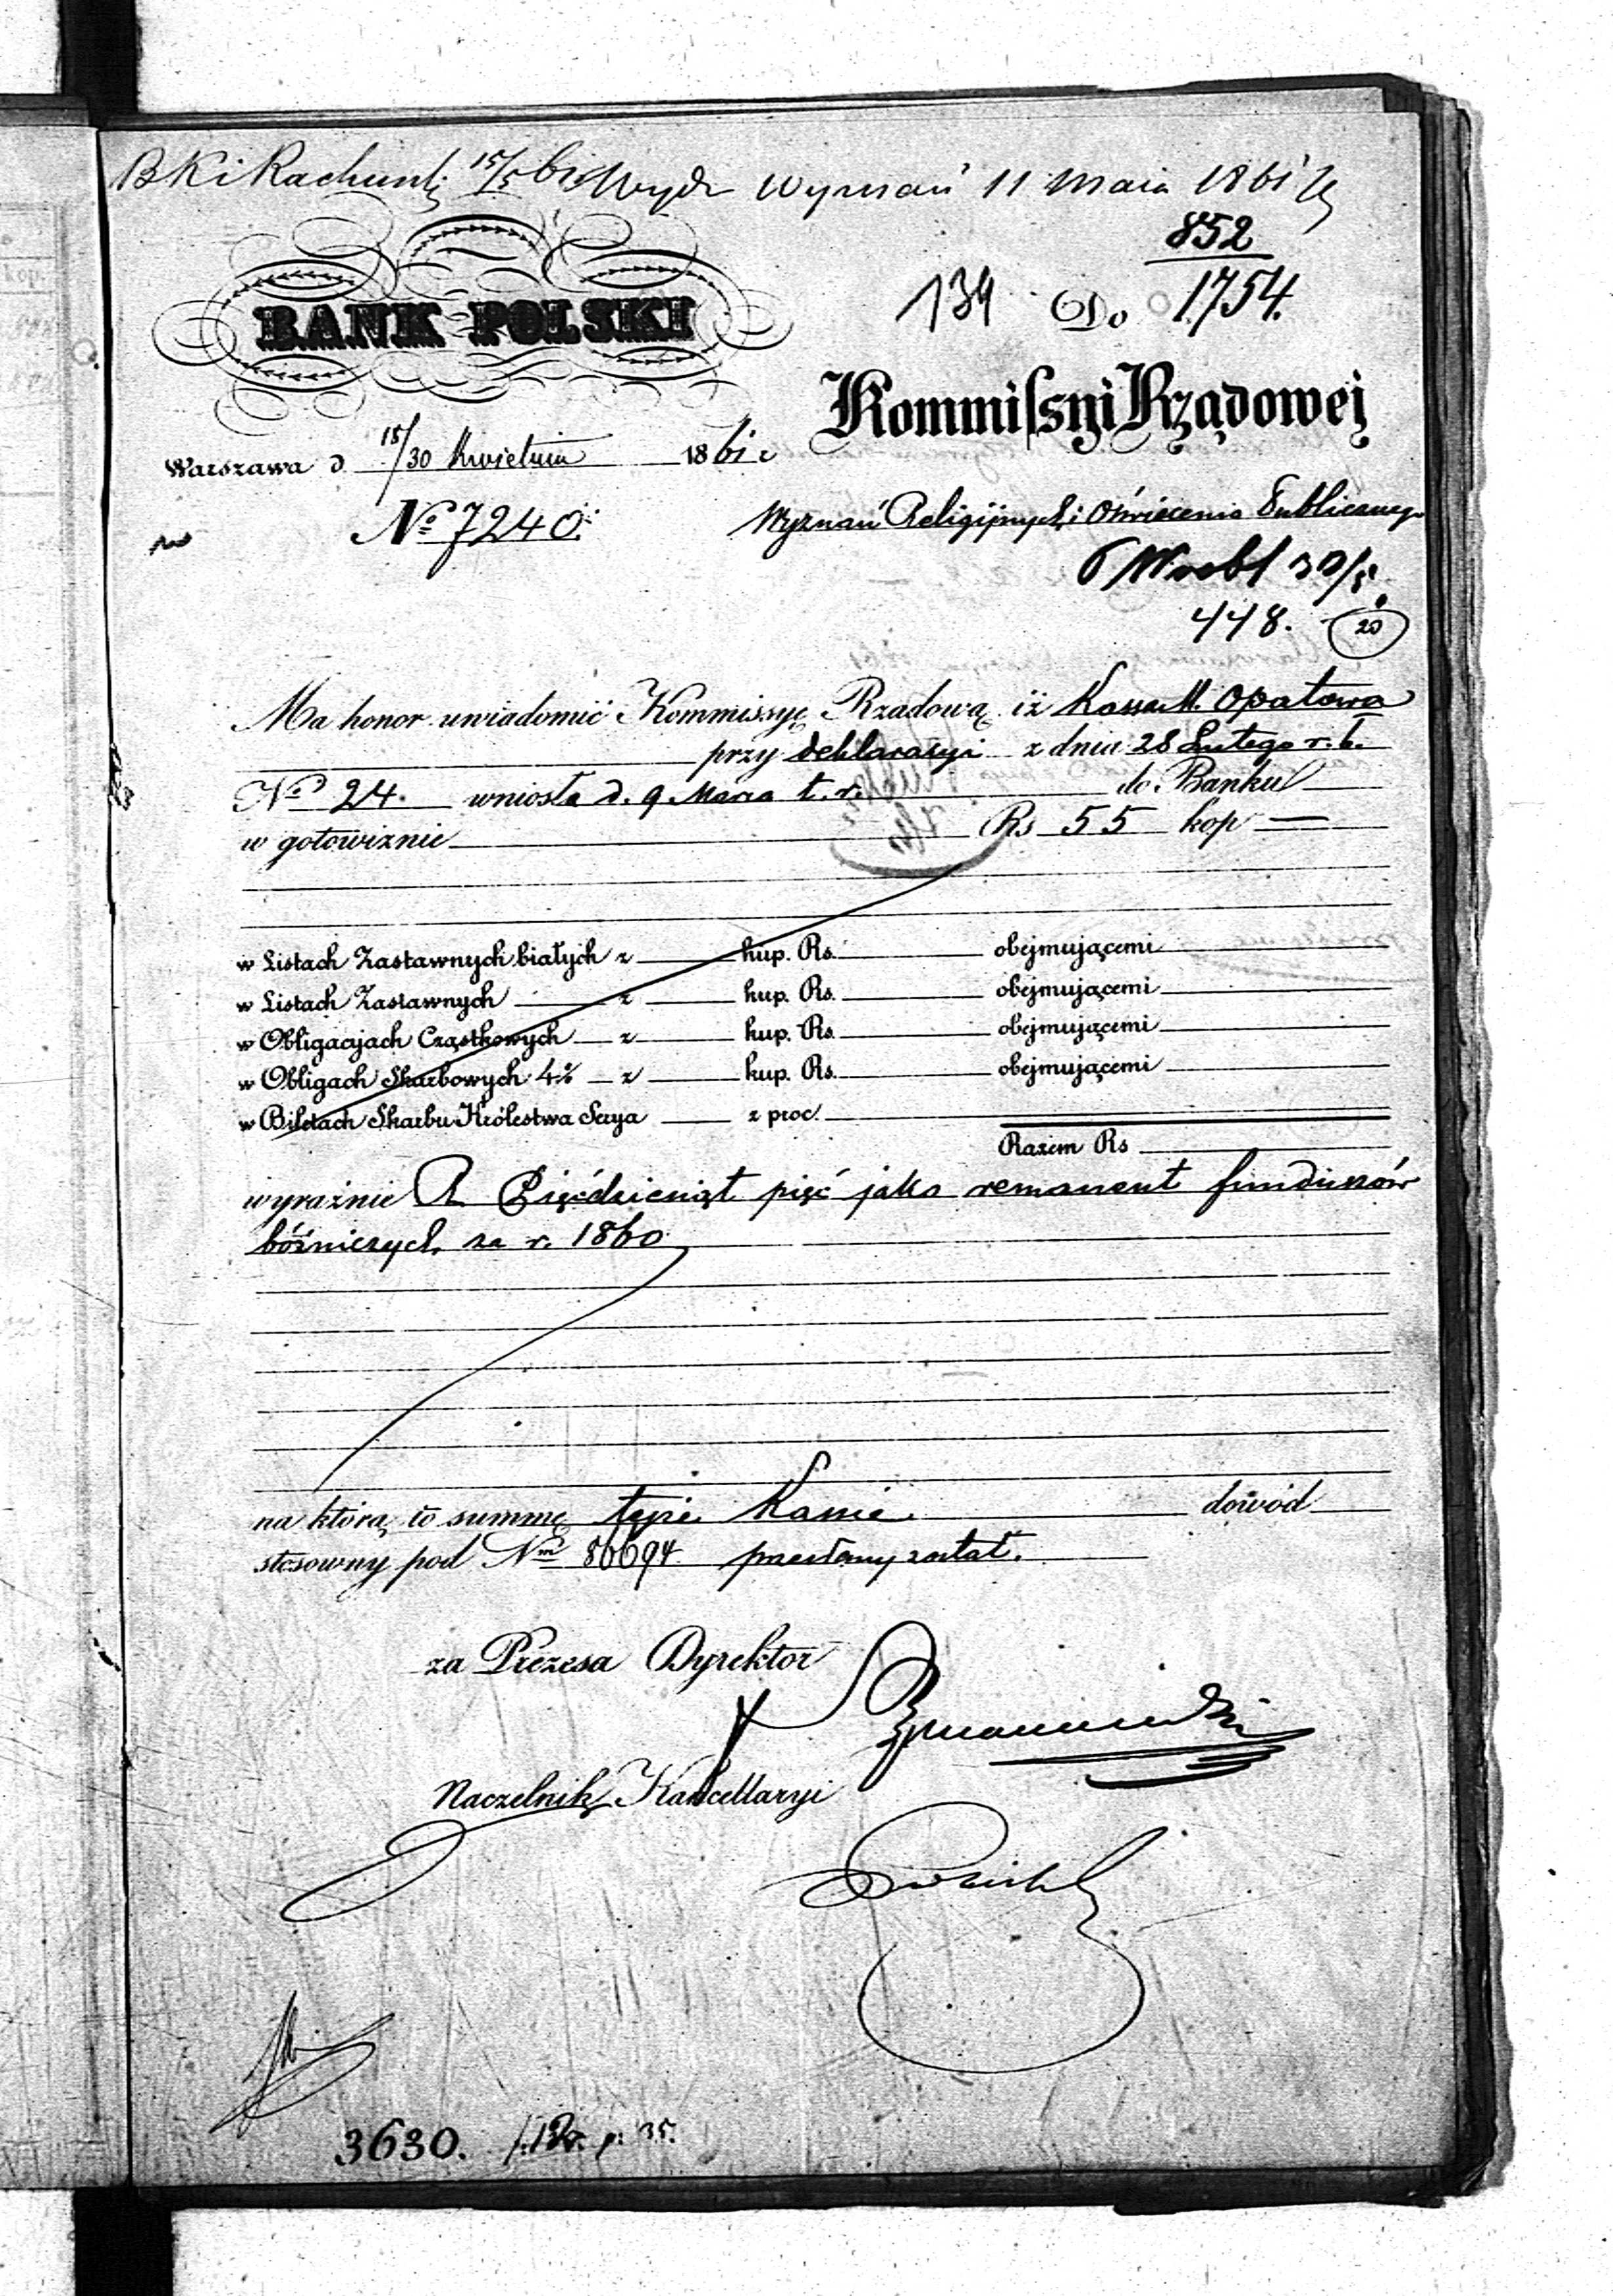 Wyznań 11 Maia 1861
852
BANK POLSKI
134 Do 1754.
Kommissyi Rządowej
Warszawa d. 18/30 Kwietnia 1861 r
№ 7240.
Wyznań Religijnych i Oświecenia Publicznego
448. 20
Ma honor uwiadomić Kommissyę Rządową iż Kassa M. Opatowa
przy deklaracyi z dnia 28 Lutego r. b.
№ 24. wniosła d. 9 Marca t. r. do Banku
w gotowiznie Rs 55 kop —
w Listach Zastawnych białych z kup. Rs. obejmującemi
w Listach Zastawnych z kup. Rs. obejmującemi
w Obligacjach Cząstkowych z kup. Rs. obejmującemi
w Obligach Skarbowych 4% z kup. Rs. obejmującemi
w Biletach Skarbu Królestwa Serya z proc.
Razem Rs
wyraźnie R. Pięćdziesiąt pięć jako remanent funduszów
bóżniczych za r. 1860
na którą to summę tejże Kassie dowód
stosowny pod Nm 86694 przesłany został.
za Prezesa Dyrektor
Naczelnik Kancellaryi
3630. p. 35.